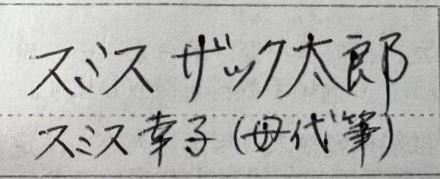 スミス ザック太郎
スミス 幸子(母代筆)